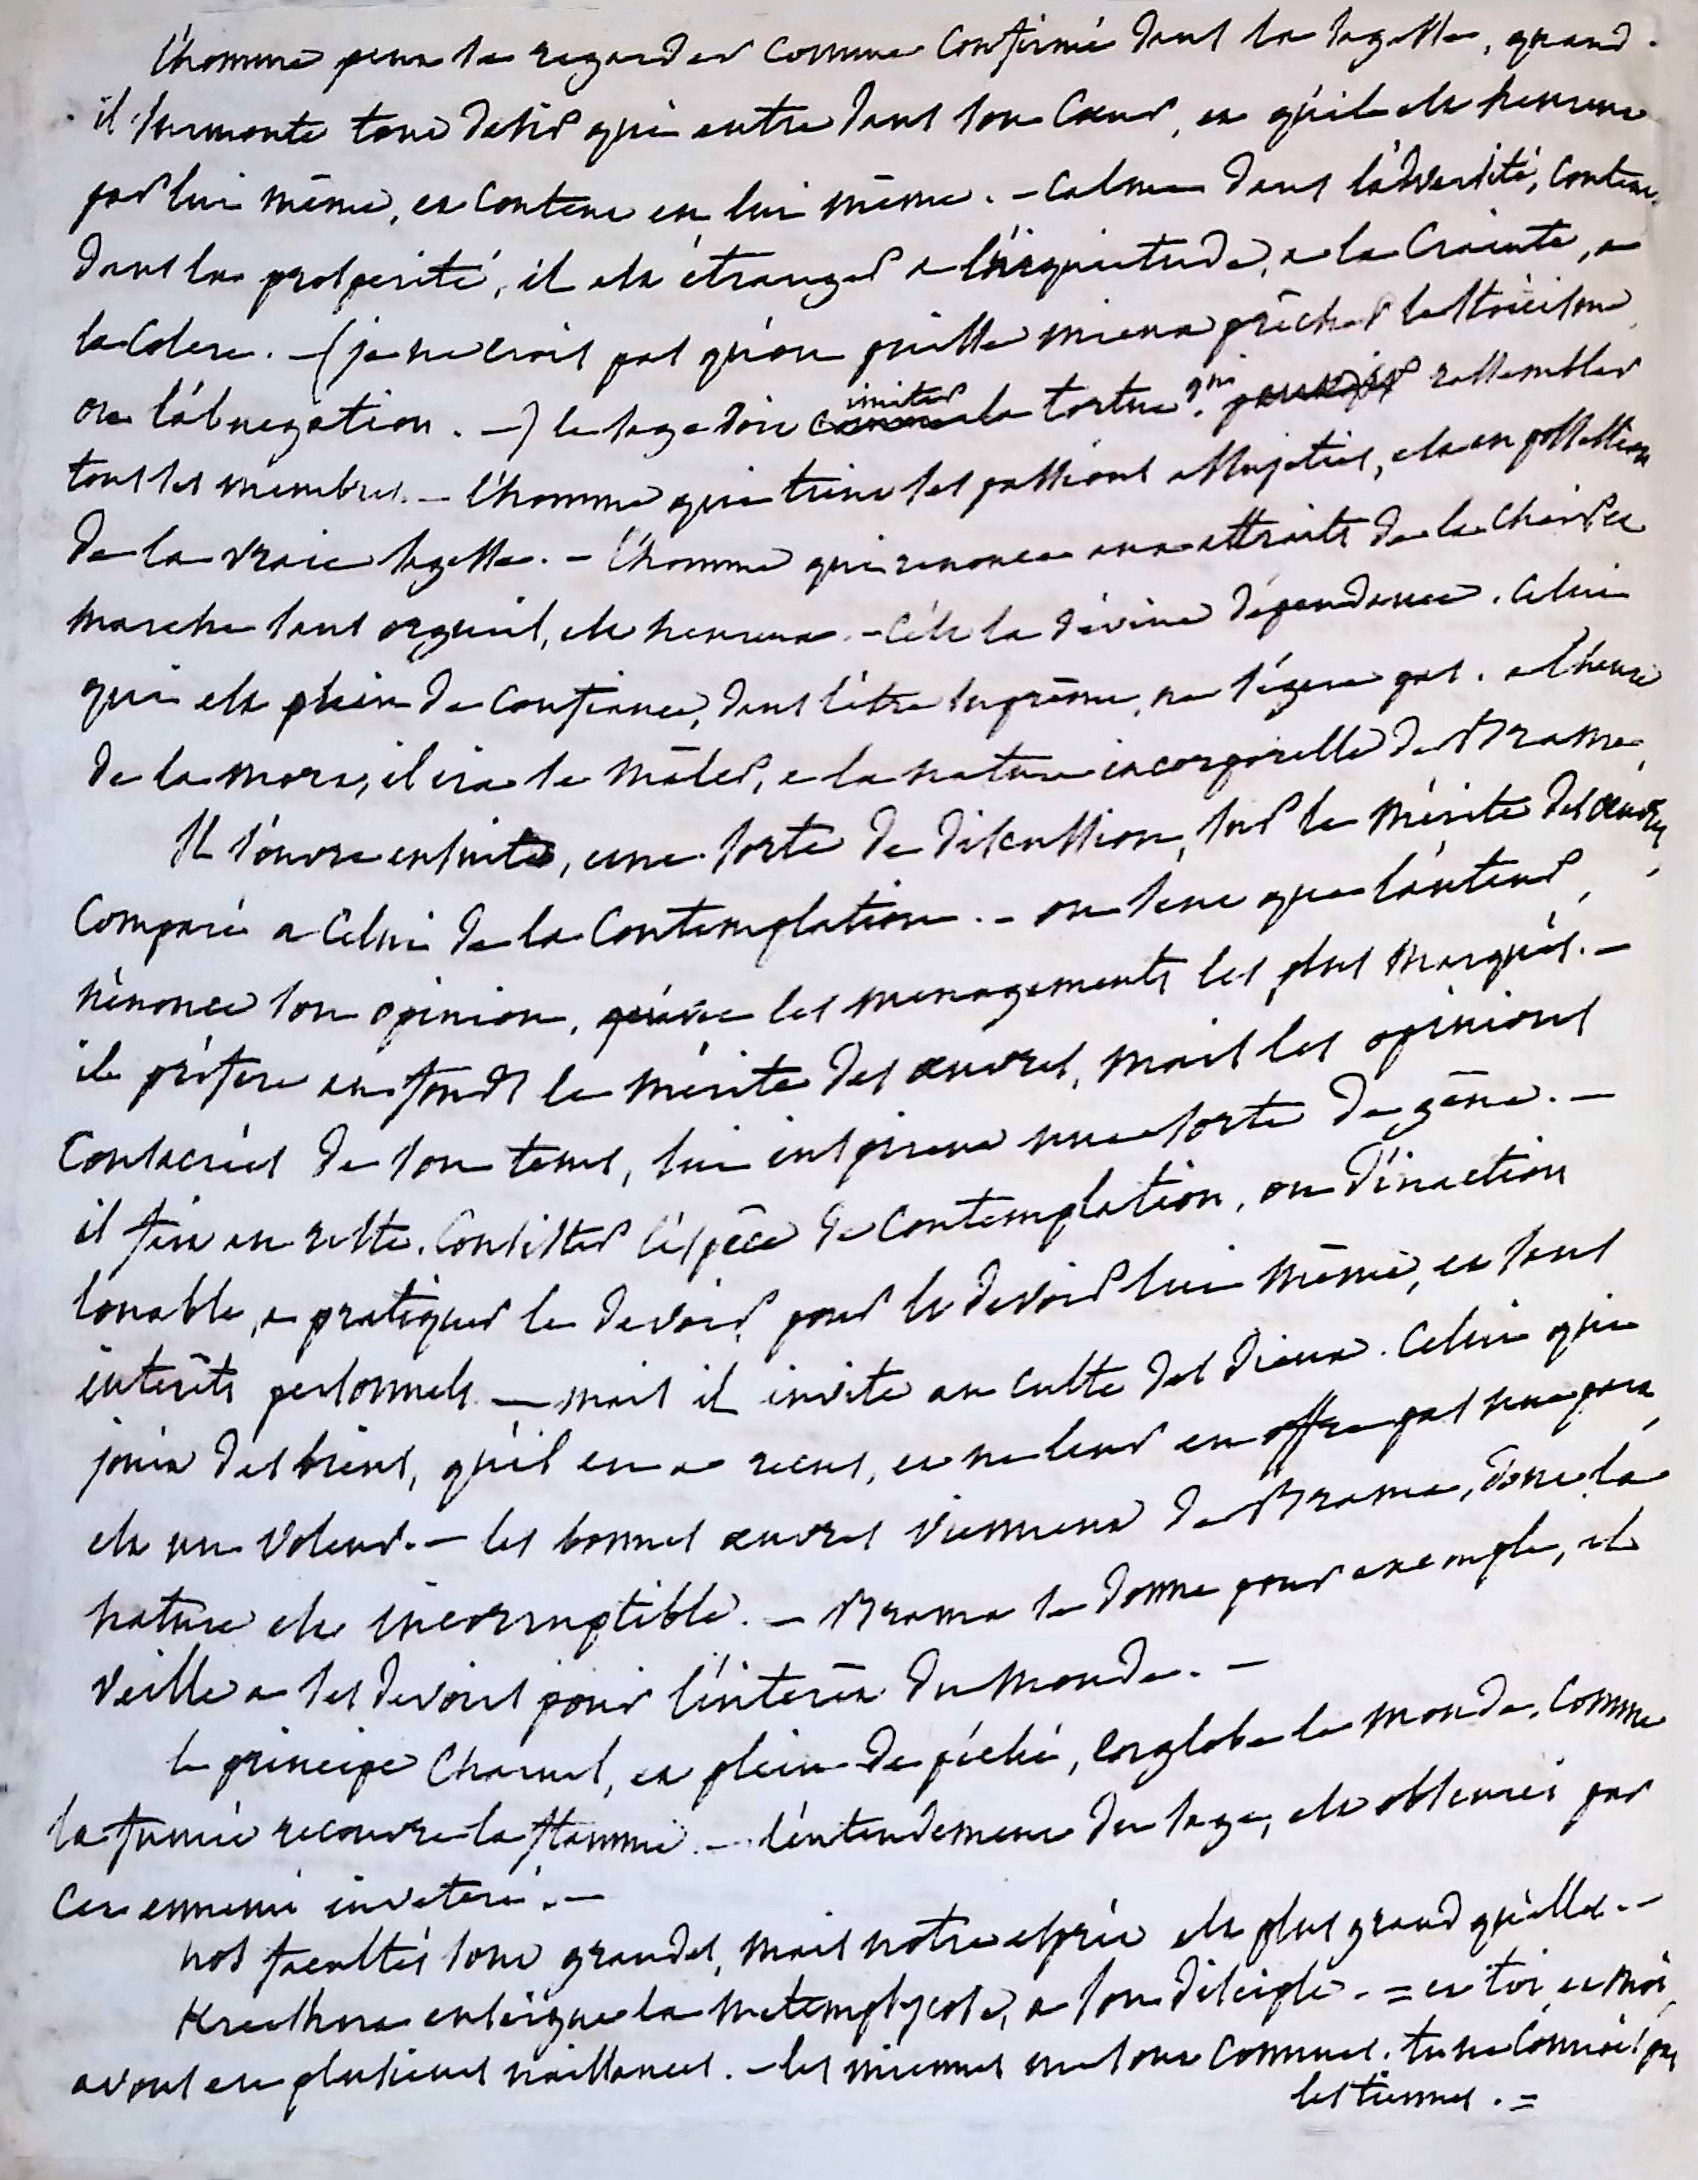 l'homme peut se regarder comme confirmé dans la sagesse, quand
il surmonte tout desir qui entre dans son cœur, et qu'il est heureux
par lui même, et content en lui même. - calme dans l'adversité, content
dans la prosperité, il est étranger a l'inquietude, a la crainte, a
la colere. - (je ne crois pas qu'on puisse mieux prêcher le stoicisme
ou l'abnegation. -) le sage doit comme imiter la tortue qui rassembler
tous ses membres. - l'homme qui tient ses passions assujeties, est en possession
de la vraie sagesse. - l'homme qui renonce aux attraits de la chair et
marche sans orgueil, est heureux. - c'est la divine dépendance. celui
qui est plein de confiance, dans l'être suprême, ne s'égare pas. a l'heure
de la mort, il ira se mêler, a la nature incorporelle de Brama,
Il s'ouvre ensuite, une sorte de discussion, sur le mérite des œuvres,
comparé a celui de la contemplation. - on sent que l'auteur,
n'énonce son opinion, qu'avec les menagements les plus marqués. -
il préfere au fonds le mérite des œuvres, mais les opinions
consacrées de son tems, lui inspirent une sorte de gêne. -
il fait au reste, consister l'espèce de contemplation, ou d'inaction
louable, a pratiquer le devoir, pour le devoir lui même, et sans
interêts personnels. - mais il invite au culte des dieux. celui qui
jouit des biens, qu'il en a reçus, et ne leur en offre pas une part,
est un voleur. - les bonnes œuvres viennent de Brama, dont la
nature est incorruptible. - Brama se donne pour exemple, il
veille a ses devoirs pour l'intérêt du monde. -
le principe charnel, et plein de péché, englobe le monde, comme
la fumée recouvre la flamme. - l'entendement du sage, est obscurci par
cet ennemi inveteré. -
nos facultés sont grandes, mais notre esprit est plus grand qu'elles. -
Kreeshna enseigne la metempsycose, a son disciple. = et toi et moi,
avons eu plusieurs naissances. - les miennes me sont connues. tu ne connois pas
les tiennes. =